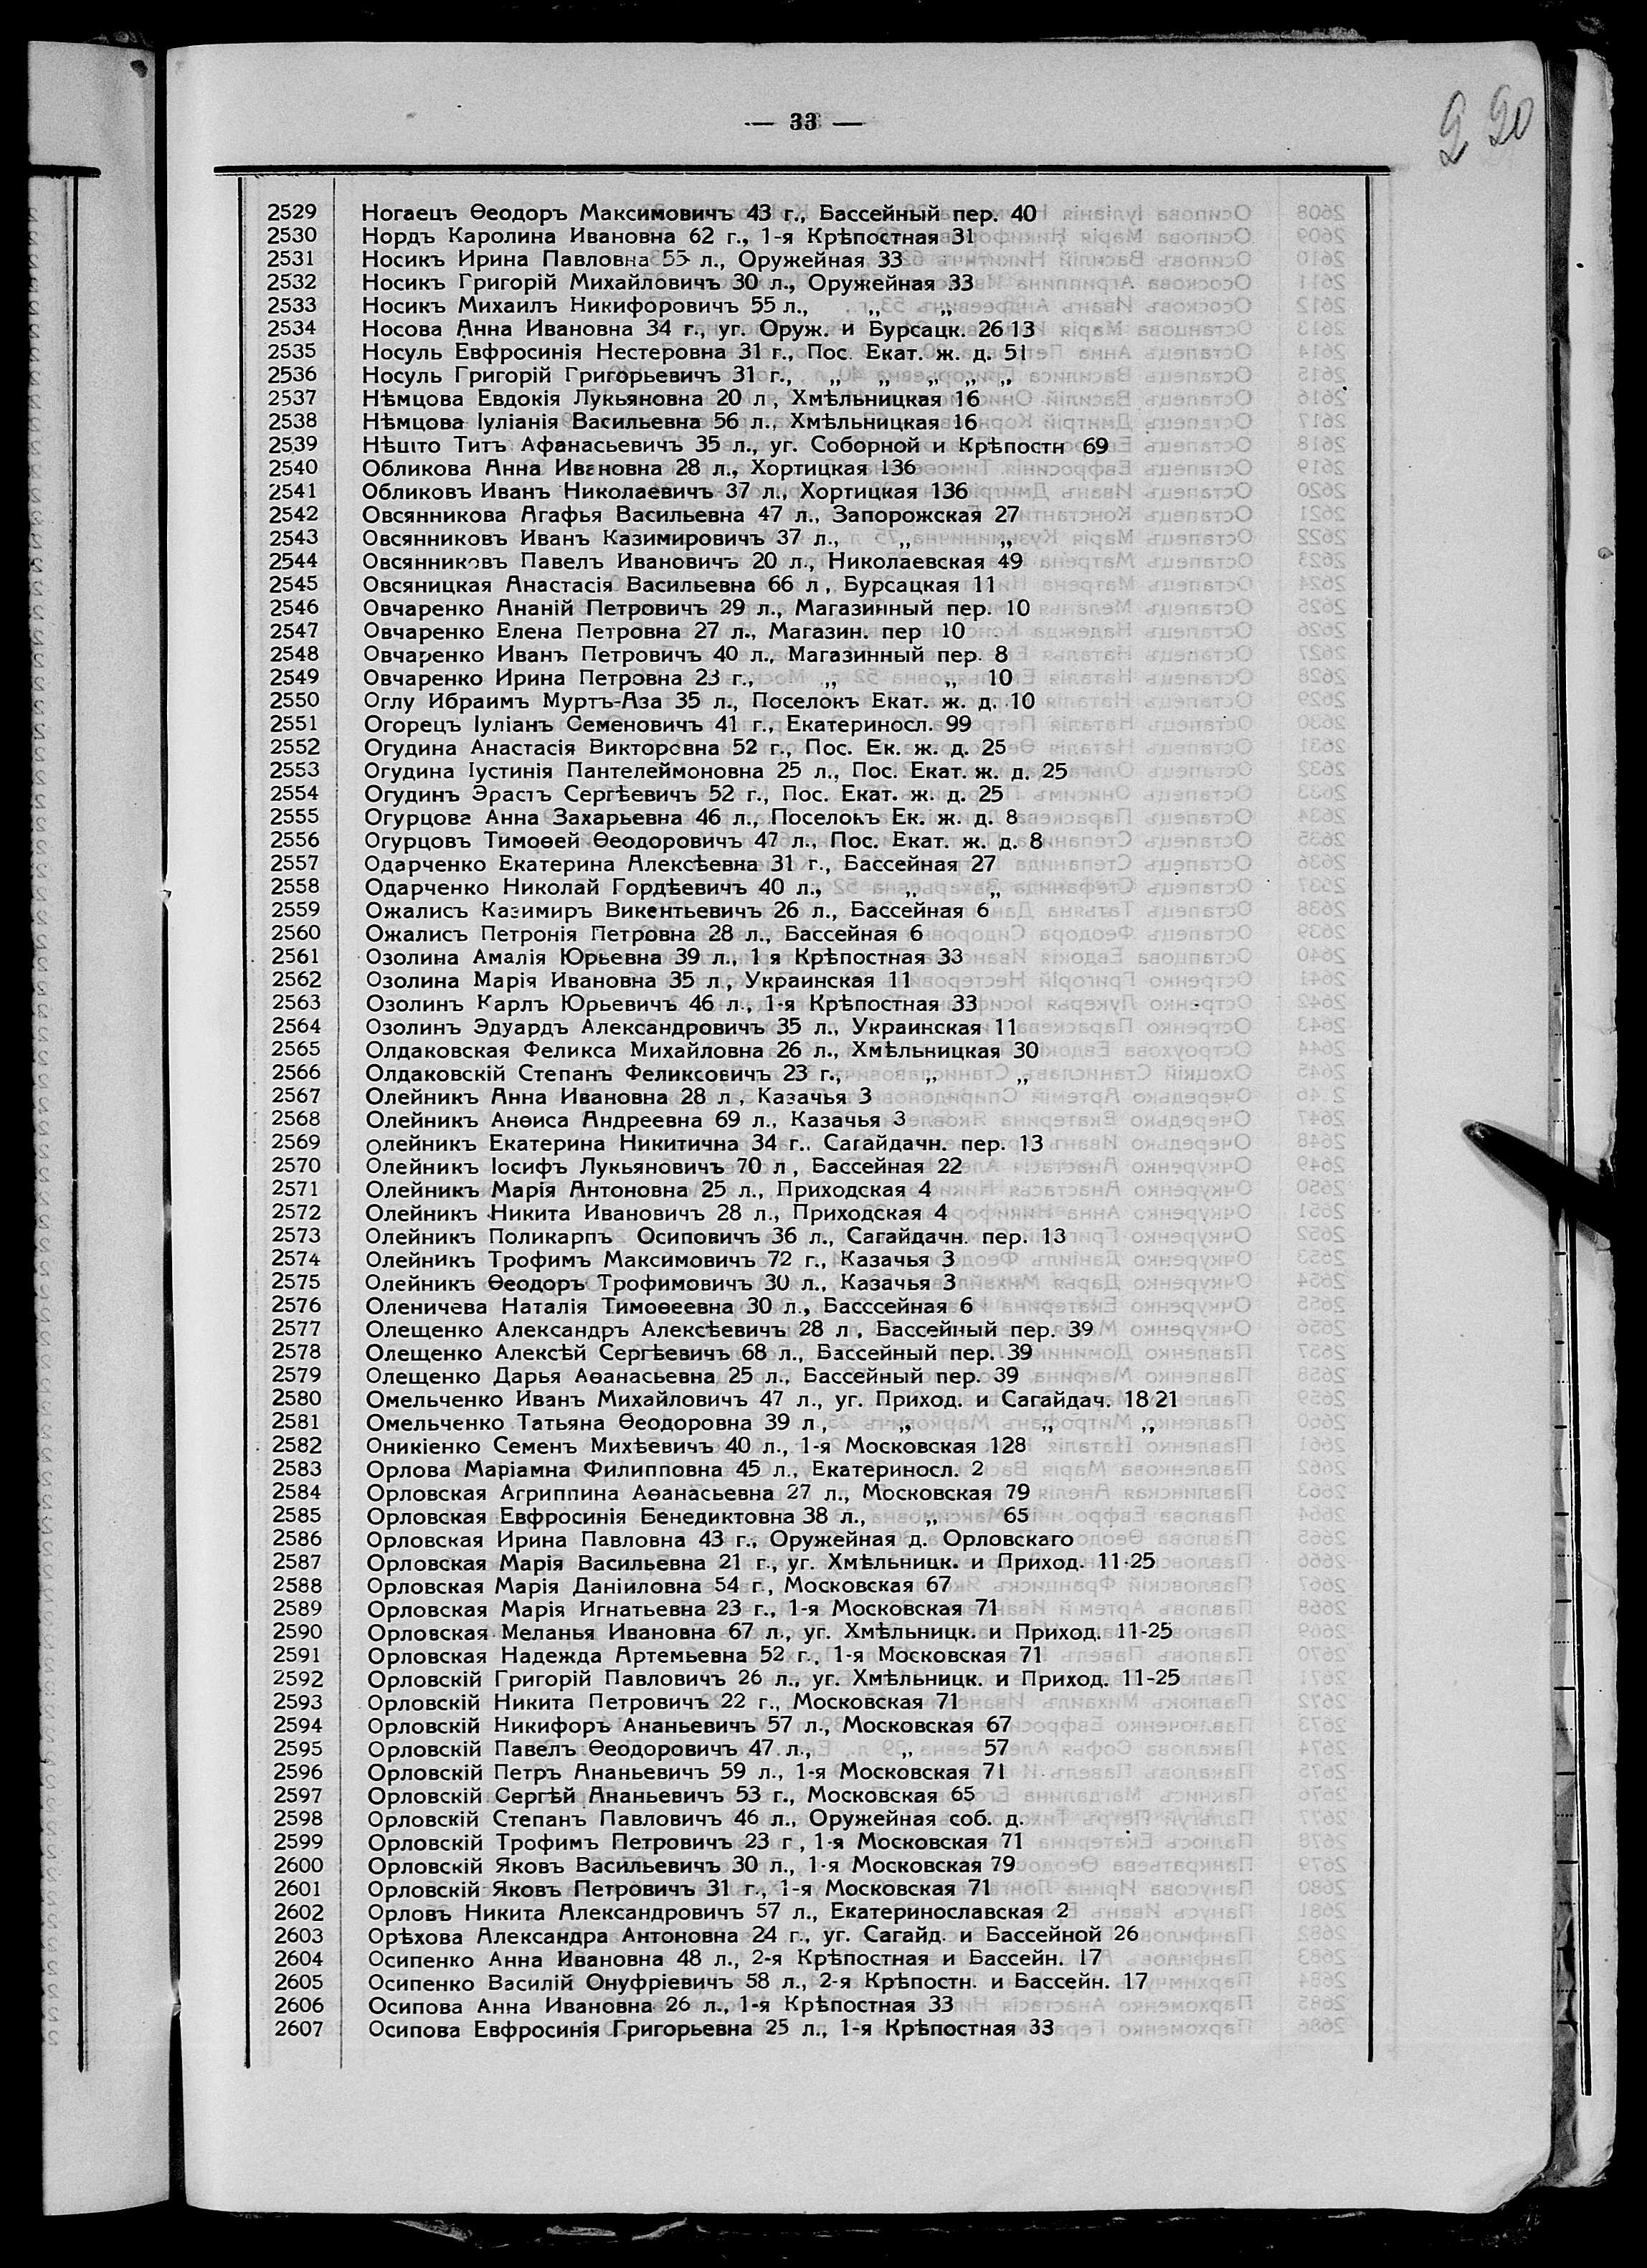 — 33 —
2 20
2529 Ногаецъ Ѳеодоръ Максимовичъ 43 г., Бассейный пер. 40
2530 Нордъ Каролина Ивановна 62 г., 1-я Крѣпостная 31
2531 Носикъ Ирина Павловна 55 л., Оружейная 33
2532 Носикъ Григорій Михайловичъ 30 л., Оружейная 33
2533 Носикъ Михаилъ Никифоровичъ 55 л., „ „
2534 Носова Анна Ивановна 34 г., уг. Оруж. и Бурсацк. 26 13
2535 Носуль Евфросинія Нестеровна 31 г., Пос. Екат. ж. д. 51
2536 Носуль Григорій Григорьевичъ 31 г., „ „ „ „ „
2537 Нѣмцова Евдокія Лукьяновна 20 л , Хмѣльницкая 16
2538 Нѣмцова Іуліанія Васильевна 56 л., Хмѣльницкая 16
2539 Нѣшто Титъ Афанасьевичъ 35 л., уг. Соборной и Крѣпостн 69
2540 Обликова Анна Ивановна 28 л., Хортицкая 136
2541 Обликовъ Иванъ Николаевичъ 37 л., Хортицкая 136
2542 Овсянникова Агафья Васильевна 47 л., Запорожская 27
2543 Овсянниковъ Иванъ Казимировичъ 37 л., „ „
2544 Овсянниковъ Павелъ Ивановичъ 20 л., Николаевская 49
2545 Овсяницкая Анастасія Васильевна 66 л , Бурсацкая 11
2546 Овчаренко Ананій Петровичъ 29 л., Магазинный пер. 10
2547 Овчаренко Елена Петровна 27 л., Магазин. пер 10
2548 Овчаренко Иванъ Петровичъ 40 л., Магазинный пер. 8
2549 Овчаренко Ирина Петровна 23 г., „ „ 10
2550 Оглу Ибраимъ Муртъ-Аза 35 л., Поселокъ Екат. ж. д. 10
2551 Огорецъ Іуліанъ Семеновичъ 41 г., Екатериносл. 99
2552 Огудина Анастасія Викторовна 52 г., Пос. Ек. ж. д. 25
2553 Огудина Іустинія Пантелеймоновна 25 л., Пос. Екат. ж. д. 25
2554 Огудинъ Эрастъ Сергѣевичъ 52 г., Пос. Екат. ж. д. 25
2555 Огурцова Анна Захарьевна 46 л., Поселокъ Ек. ж. д. 8
2556 Огурцовъ Тимоѳей Ѳеодоровичъ 47 л., Пос. Екат. ж. д. 8
2557 Одарченко Екатерина Алексѣевна 31 г., Бассейная 27
2558 Одарченко Николай Гордѣевичъ 40 л., „ „
2559 Ожалисъ Казимиръ Викентьевичъ 26 л., Бассейная 6
2560 Ожалисъ Петронія Петровна 28 л., Бассейная 6
2561 Озолина Амалія Юрьевна 39 л., 1 я Крѣпостная 33
2562 Озолина Марія Ивановна 35 л , Украинская 11
2563 Озолинъ Карлъ Юрьевичъ 46 л., 1-я Крѣпостная 33
2564 Озолинъ Эдуардъ Александровичъ 35 л., Украинская 11
2565 Олдаковская Феликса Михайловна 26 л., Хмѣльницкая 30
2566 Олдаковскій Степанъ Феликсовичъ 23 г., „ „
2567 Олейникъ Анна Ивановна 28 л , Казачья 3
2568 Олейникъ Анѳиса Андреевна 69 л., Казачья 3
2569 Олейникъ Екатерина Никитична 34 г.. Сагайдачн. пер. 13
2570 Олейникъ Іосифъ Лукьяновичъ 70 л , Бассейная 22
2571 Олейникъ Марія Антоновна 25 л., Приходская 4
2572 Олейникъ Никита Ивановичъ 28 л., Приходская 4
2573 Олейникъ Поликарпъ Осиповичъ 36 л., Сагайдачн. пер. 13
2574 Олейникъ Трофимъ Максимовичъ 72 г., Казачья 3
2575 Олейникъ Ѳеодоръ Трофимовичъ 30 л., Казачья 3
2576 Оленичева Наталія Тимоѳеевна 30 л., Басссейная 6
2577 Олещенко Александръ Алексѣевичъ 28 л , Бассейный пер. 39
2578 Олещенко Алексѣй Сергѣевичъ 68 л., Бассейный пер. 39
2579 Олещенко Дарья Аѳанасьевна 25 л., Бассейный пер. 39
2580 Омельченко Иванъ Михайловичъ 47 л., уг. Приход. и Сагайдач. 18 21
2581 Омельченко Татьяна Ѳеодоровна 39 л , „ „ „
2582 Оникіенко Семенъ Михѣевичъ 40 л., 1-я Московская 128
2583 Орлова Маріамна Филипповна 45 л., Екатериносл. 2
2584 Орловская Агриппина Аѳанасьевна 27 л., Московская 79
2585 Орловская Евфросинія Бенедиктовна 38 л., „ 65
2586 Орловская Ирина Павловна 43 г., Оружейная д. Орловскаго
2587 Орловская Марія Васильевна 21 г., уг. Хмѣльницк. и Приход. 11-25
2588 Орловская Марія Даніиловна 54 г., Московская 67
2589 Орловская Марія Игнатьевна 23 г., 1-я Московская 71
2590 Орловская Меланья Ивановна 67 л., уг. Хмѣльницк. и Приход. 11-25
2591 Орловская Надежда Артемьевна 52 г., 1-я Московская 71
2592 Орловскій Григорій Павловичъ 26 л., уг. Хмѣльницк. и Приход. 11-25
2593 Орловскій Никита Петровичъ 22 г., Московская 71
2594 Орловскій Никифоръ Ананьевичъ 57 л., Московская 67
2595 Орловскій Павелъ Ѳеодоровичъ 47 л., „ 57
2596 Орловскій Петръ Ананьевичъ 59 л., 1-я Московская 71
2597 Орловскій Сергѣй Ананьевичъ 53 г., Московская 65
2598 Орловскій Степанъ Павловичъ 46 л., Оружейная соб. д.
2599 Орловскій Трофимъ Петровичъ 23 г , 1-я Московская 71
2600 Орловскій Яковъ Васильевичъ 30 л., 1-я Московская 79
2601 Орловскій Яковъ Петровичъ 31 г., 1-я Московская 71
2602 Орловъ Никита Александровичъ 57 л., Екатеринославская 2
2603 Орѣхова Александра Антоновна 24 г., уг. Сагайд. и Бассейной 26
2604 Осипенко Анна Ивановна 48 л., 2-я Крѣпостная и Бассейн. 17
2605 Осипенко Василій Онуфріевичъ 58 л., 2-я Крѣпостн. и Бассейн. 17
2606 Осипова Анна Ивановна 26 л., 1-я Крѣпостная 33
2607 Осипова Евфросинія Григорьевна 25 л., 1-я Крѣпостная 33